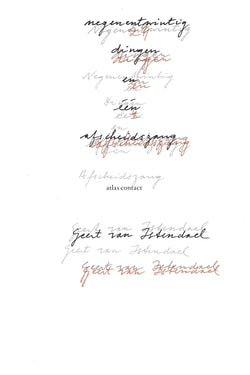 negenentwintig
Negenentwintig
29
dingen
dingen
Negenentwintig
en
en
één
afscheidszang
afscheidszang
Afscheidszang
atlas contact
Geert van Istendael
Geert van Istendael
Geert van Istendael
Geert van Istendael
Geert van Istendael